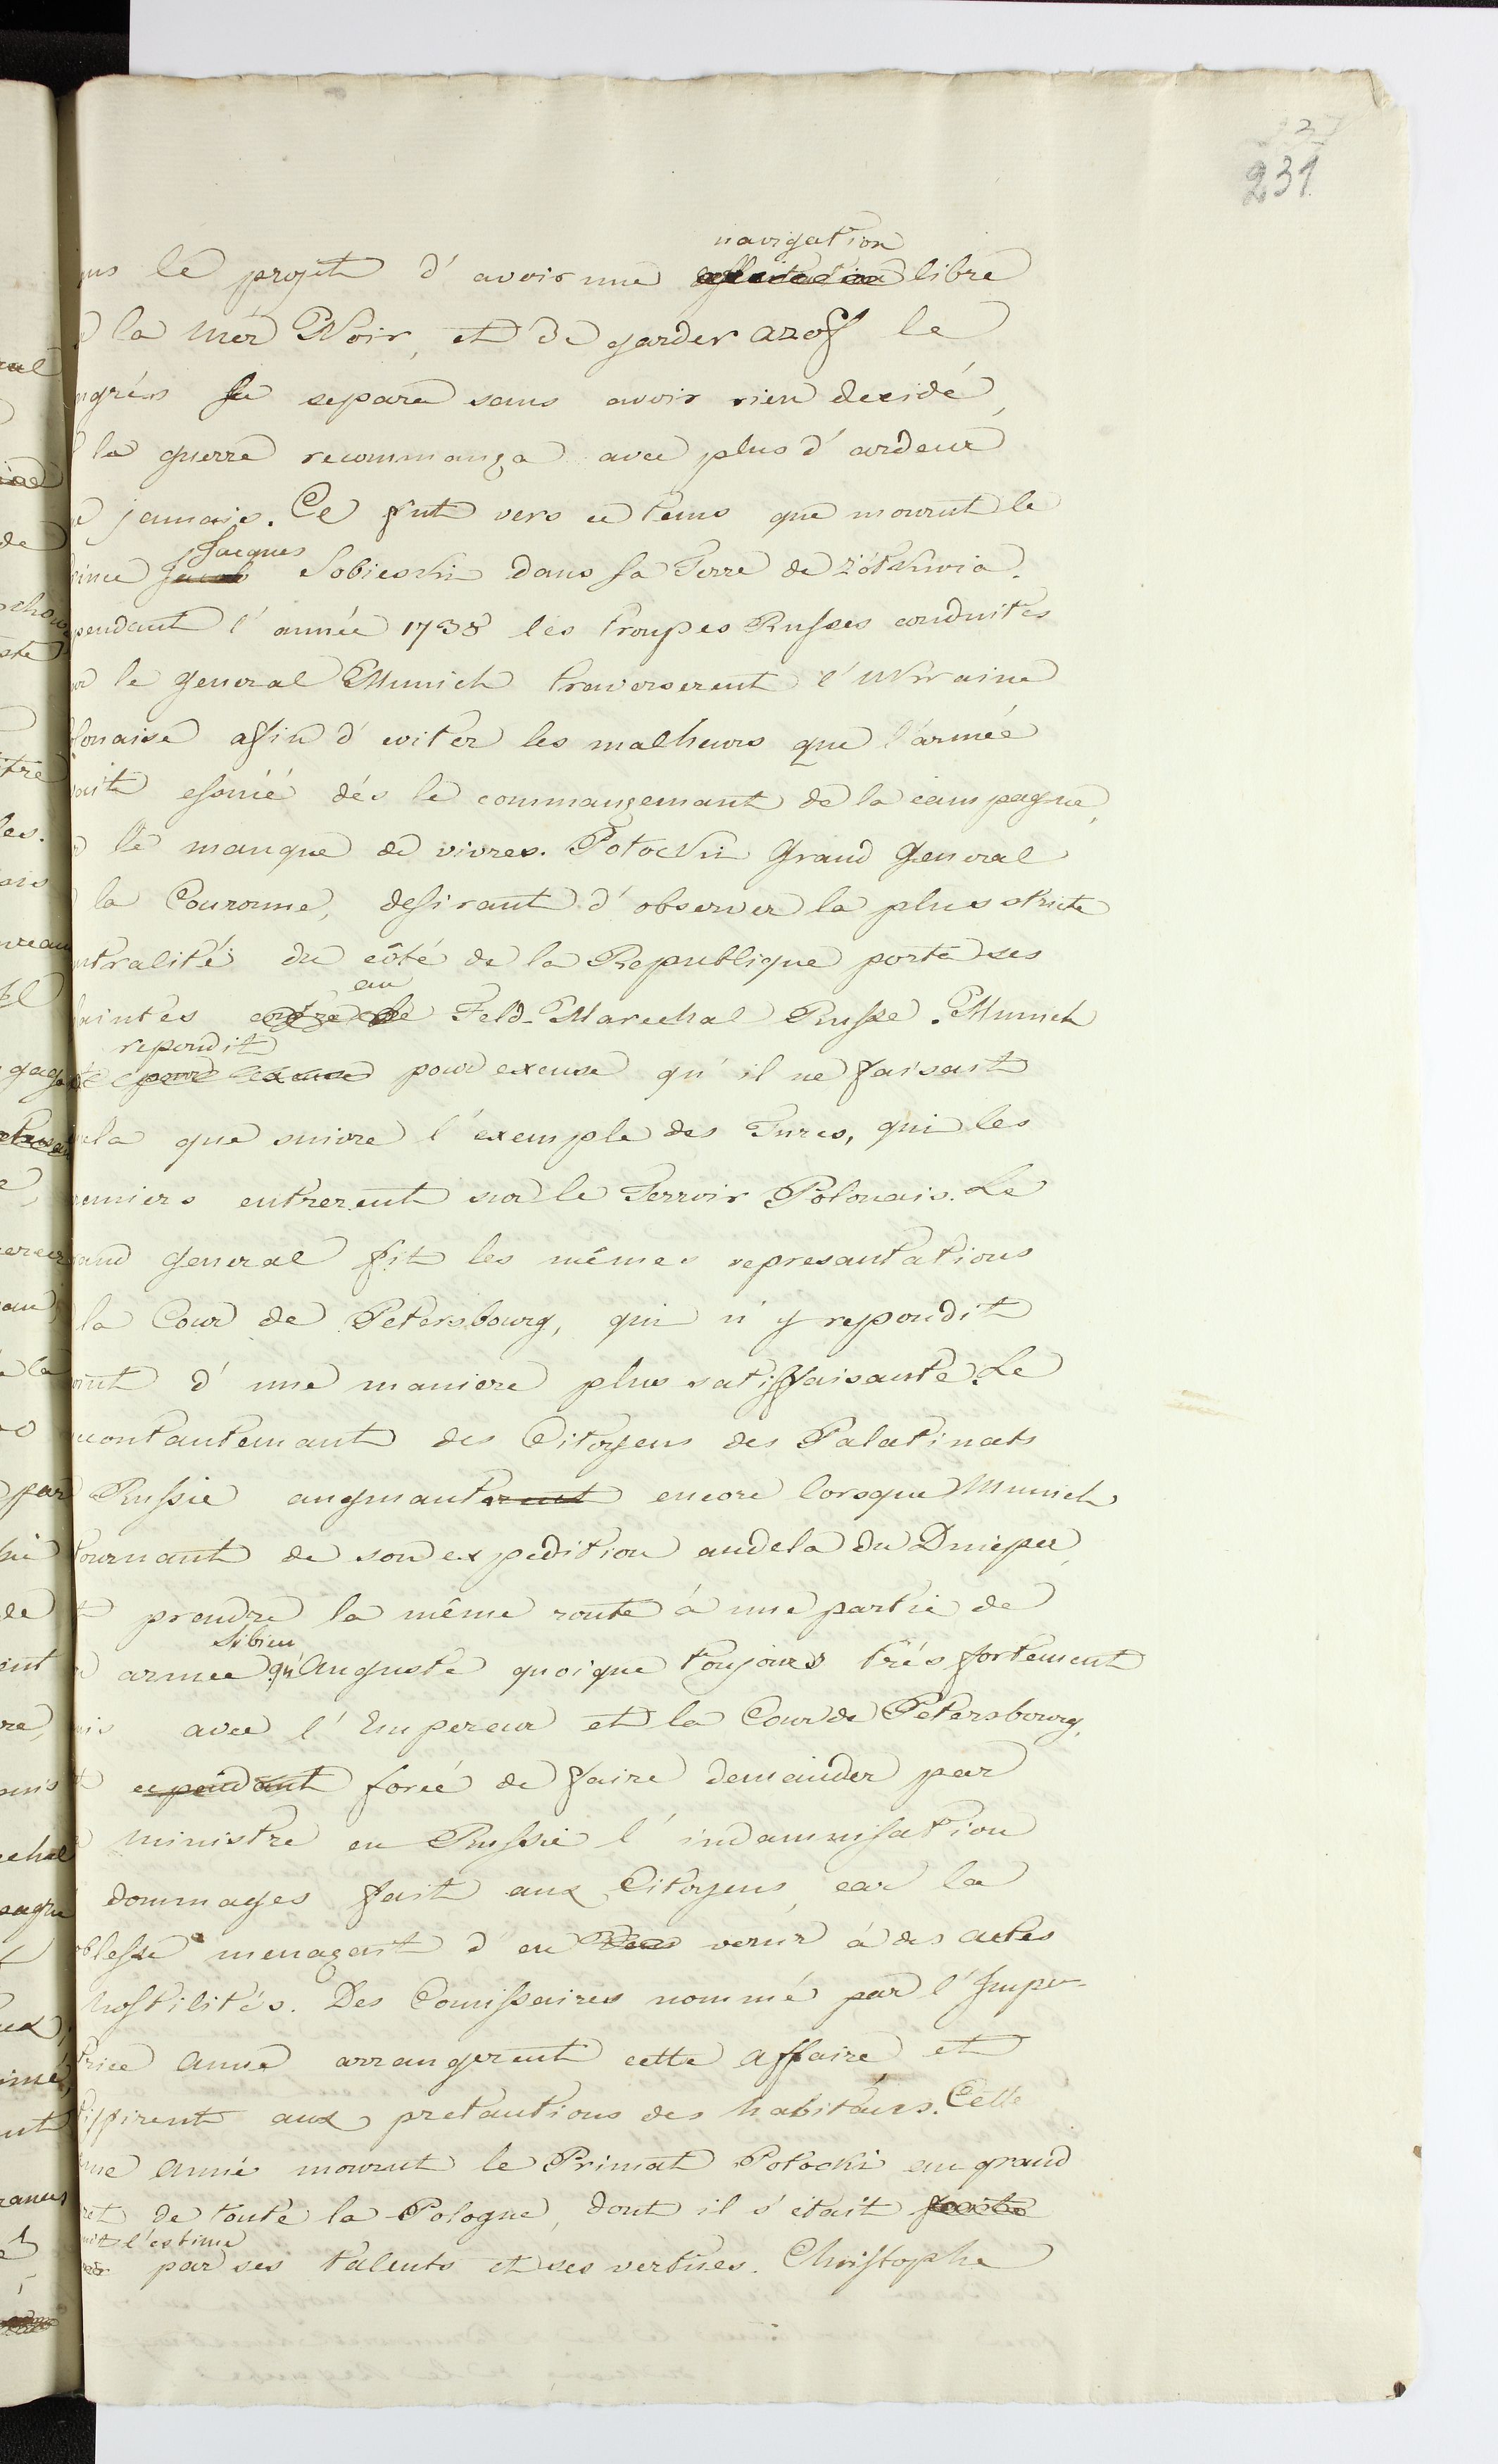 237
231
navigation
ns le projet d'avoir une libre
la Mer Noir, et de garder azof le
ngrés se separa sans avoir rien decidé,
la guerre recommança avec plus d'ardeur
e jamais. Ce fut vers ce tems que mourut le
Jacques
rince Jacob Sobieski dans sa Terre de Żółkwia.
pendant l'année 1738 les troupes Russes conduites
ar le general Munich traverserent l'Ukraine
lonaise afin d'eviter les malheurs que l'armée
oait essuié dés le commançemant de la campagne,
le manque de vivres. Potocki Grand General
la Couronne, desirant d'observer la plus stricte
utralité du côté de la Republique porta ses
au
aintes contre le Feld-Marechal Russe. Munich
repondit
pour excuse pour excuse qu'il ne faisait
ela que suivre l'exemple des Turcs, qui les
remiers entrerent sur le Terroir Polonais. Le
rand General fit les mêmes represantations
la Cour de Petersbourg, qui n'y repondit
oint d'une maniere plus satisfaisante. Le
econtantemant des Citoyens des Palatinats
Russie augmanterent encore lorsque Munich
tournant de son expedition audela du Dnieper,
t prendre la même route à une partie de
Sibien
armee qu'Auguste quoique toujours trés fortement
nis avec l'Empereur et la Cour de Petersbourg,
t cependant forcé de faire demander par
ministre en Russie l'indamnisation
dommages fait aux Citoyens, car la
oblesse menaçait d'en venir à des actes
hostilités. Des Comissaires nommé par l'Impe-
trice Anne arrangerent cette affaire et
tisfirent aux pretantions des habitans. Cette
me Année mourut le Primat Potocki au grand
ret de toute la Pologne, dont il s'était
uit l'estime
par ses talents et ses vertues. Christophe